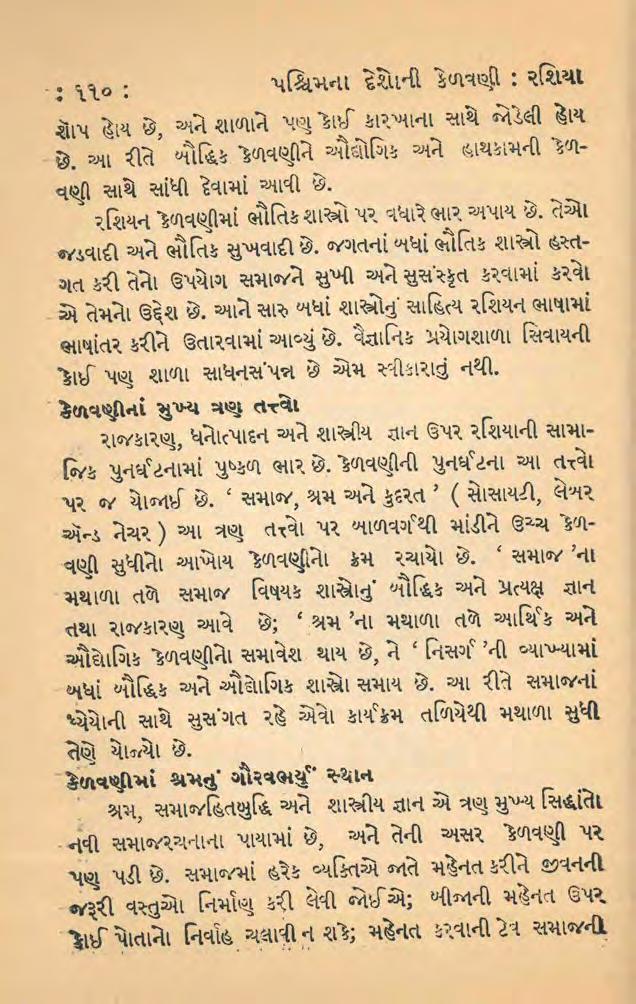 : ૧૧૦ : પશ્ચિમના દેશોની કેળવણી : રશિયા
શૉપ હોય છે, અને શાળાને પણ કોઈ કારખાના સાથે જોડેલી હોય
છે. આ રીતે બૌદ્ધિક કેળવણીને ઔદ્યોગિક અને હાથકામની કેળ-
વણી સાથે સાંધી દેવામાં આવી છે.
રશિયન કેળવણીમાં ભૌતિક શાસ્ત્રો પર વધારે ભાર અપાય છે. તેઓ
જડવાદી અને ભૌતિક સુખવાદી છે. જગતનાં બધાં ભૌતિક શાસ્ત્રો હસ્ત-
ગત કરી તેનો ઉપયોગ સમાજને સુખી અને સુસંસ્કૃત કરવામાં કરવો
એ તેમનો ઉદ્દેશ છે. આને સારુ બધાં શાસ્ત્રોનું સાહિત્ય રશિયન ભાષામાં
ભાષાંતર કરીને ઉતારવામાં આવ્યું છે. વૈજ્ઞાનિક પ્રયોગશાળા સિવાયની
કોઈ પણ શાળા સાધનસંપન્ન છે એમ સ્વીકારાતું નથી.
કેળવણીનાં મુખ્ય ત્રણ તત્ત્વો
રાજકારણ, ધનોત્પાદન અને શાસ્ત્રીય જ્ઞાન ઉપર રશિયાની સામા-
જિક પુનર્ઘટનામાં પુષ્કળ ભાર છે. કેળવણીની પુનર્ઘટના આ તત્ત્વો
પર જ યોજાઈ છે. ‘ સમાજ, શ્રમ અને કુદરત ’ ( સોસાયટી, લેબર
ઍન્ડ નેચર ) આ ત્રણ તત્ત્વો પર બાળવર્ગથી માંડીને ઉચ્ચ કેળ-
વણી સુધીનો આખોય કેળવણીનો ક્રમ રચાયો છે. ‘ સમાજ ’ના
મથાળા તળે સમાજ વિષયક શાસ્ત્રોનું બૌદ્ધિક અને પ્રત્યક્ષ જ્ઞાન
તથા રાજકારણ આવે છે; ‘ શ્રમ ’ના મથાળા તળે આર્થિક અને
ઔદ્યોગિક કેળવણીનો સમાવેશ થાય છે, ને ‘ નિસર્ગ ’ની વ્યાખ્યામાં
બધાં બૌદ્ધિક અને ઔદ્યોગિક શાસ્ત્રો સમાય છે. આ રીતે સમાજનાં
ધ્યેયોની સાથે સુસંગત રહે એવો કાર્યક્રમ તળિયેથી મથાળા સુધી
તેણે યોજ્યો છે.
કેળવણીમાં શ્રમનું ગૌરવભર્યું સ્થાન
શ્રમ, સમાજહિતબુદ્ધિ અને શાસ્ત્રીય જ્ઞાન એ ત્રણ મુખ્ય સિદ્ધાંતો
નવી સમાજરચનાના પાયામાં છે, અને તેની અસર કેળવણી પર
પણ પડી છે. સમાજમાં હરેક વ્યક્તિએ જાતે મહેનત કરીને જીવનની
જરૂરી વસ્તુઓ નિર્માણ કરી લેવી જોઈએ; બીજાની મહેનત ઉપર
કોઈ પોતાનો નિર્વાહ ચલાવી ન શકે; મહેનત કરવાની ટેવ સમાજની